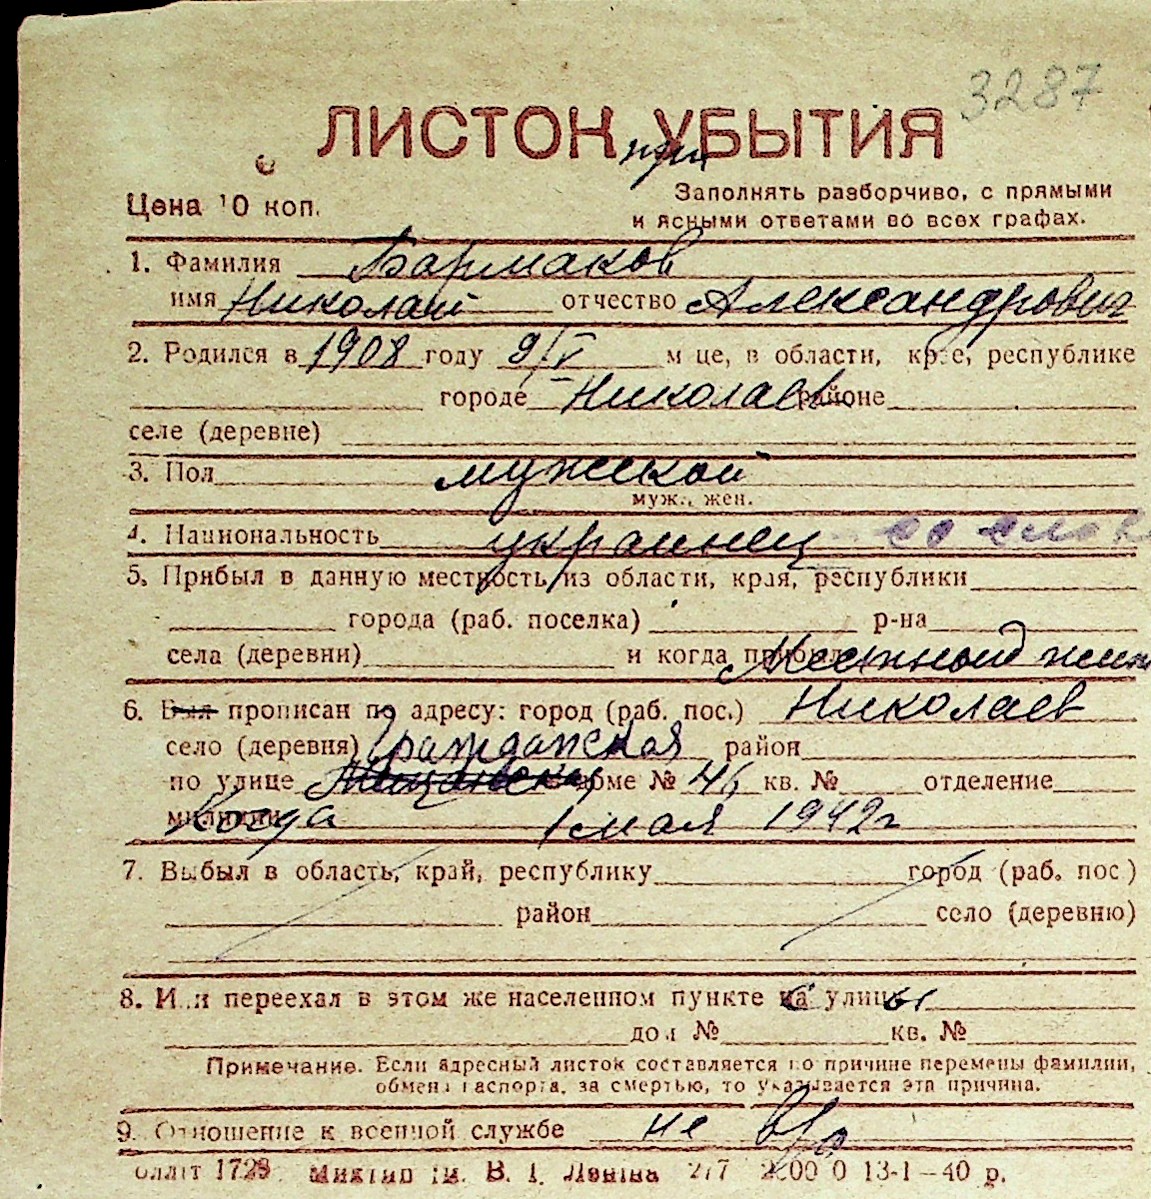 3287
ЛИСТОК при УБЫТИЯ
Цена 10 коп.
Заполнять разборчиво, с прямыми
и ясными ответами во всех графах.
1. Фамилия Бармаков
имя Николай отчество Александрович
2. Родился в 1908 году 9/V м-це, в области, крае, республике
городе Николаев районе
селе (деревне)
3. Пол мужской
муж., жен.
4. Национальность украинец со слов
5. Прибыл в данную местность из области, края, республики
города (раб. поселка) р-на
села (деревни) и когда прибыл Местный
6. Был прописан по адресу: город (раб. пос.) Николаев
село (деревня) Гражданская район
по улице доме № 46 кв. № отделение
милиции Когда 1 мая 1942 г
7. Выбыл в область, край, республику город (раб. пос)
район село (деревню)
8. Или переехал в этом же населенном пункте с улицы
дом № кв. №
Примечание. Если адресный листок составляется по причине перемены фамилии,
обмена паспорта, за смертью, то указывается эта причина.
9. Отношение к военной службе не в/о
1728 им. В. І. Леніна 2/7 13-I—40 р.